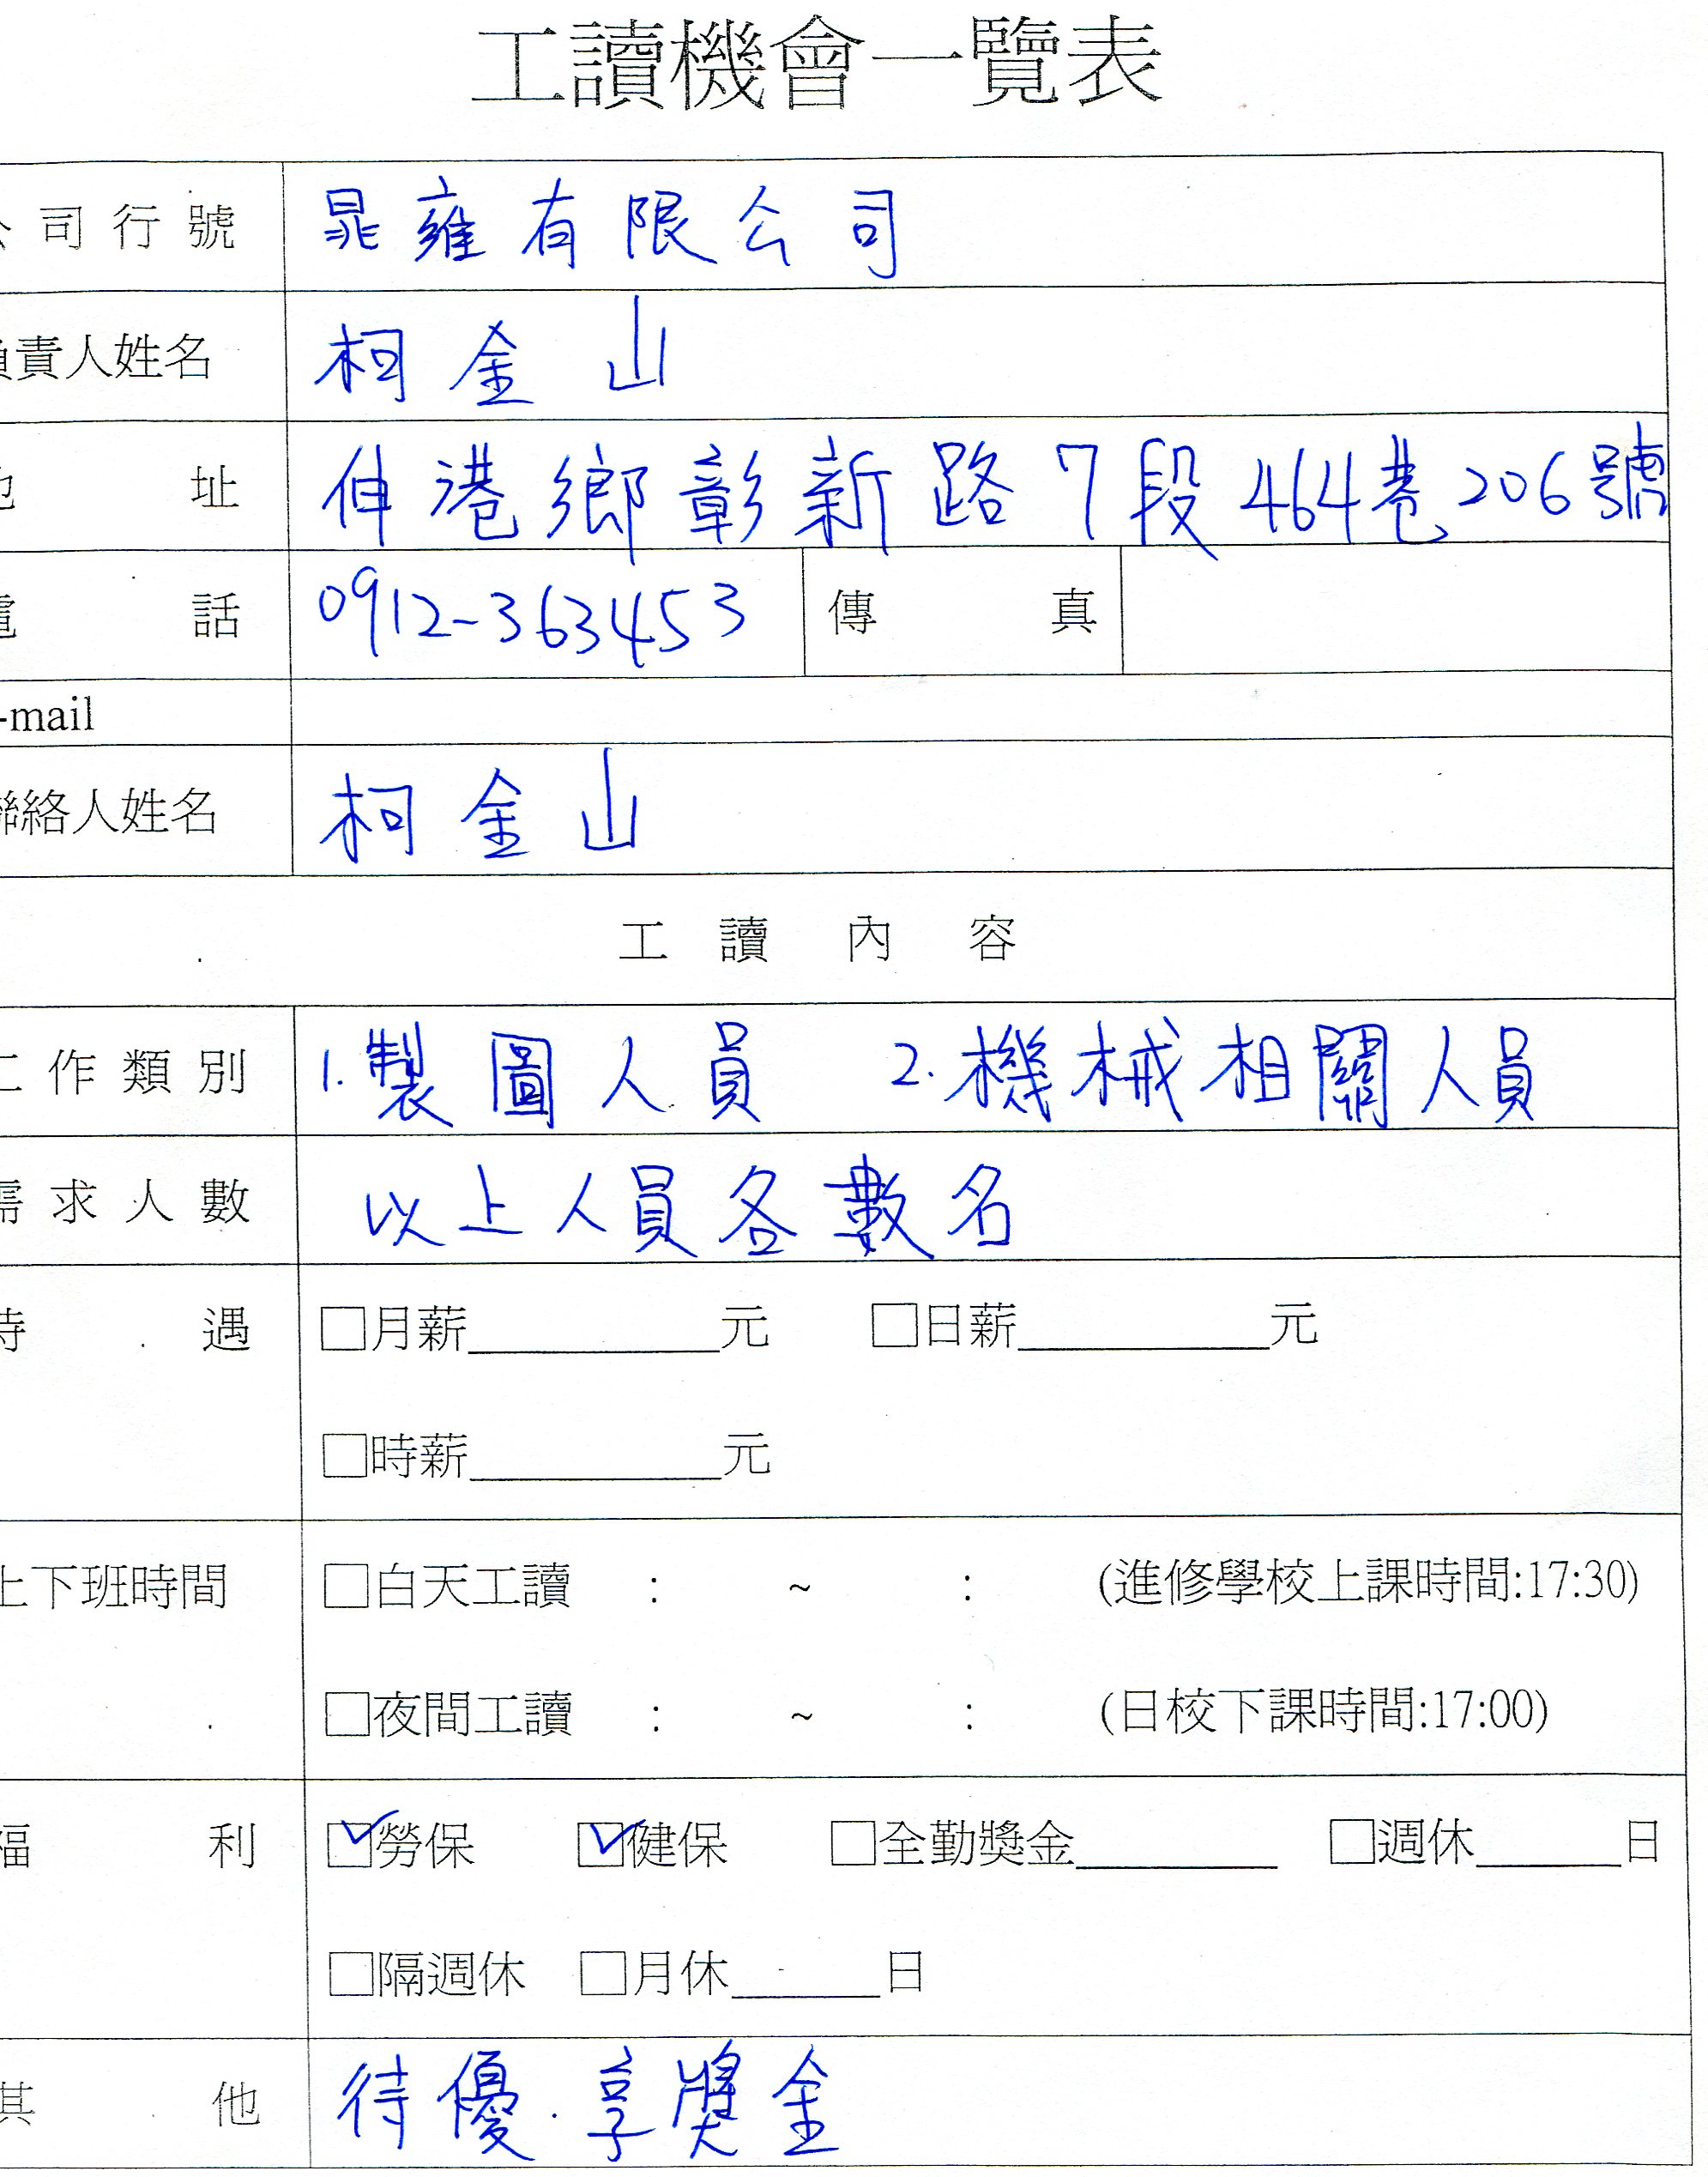 工讀機會一覽表
公司行號 晁雍有限公司
負責人姓名 柯金山
地址 伸港鄉彰新路7段464巷206號
電話 0912-363453 傳真
-mail
聯絡人姓名 柯金山
工讀內容
工作類別 1.製圖人員 2.機械相關人員
需求人數 以上人員各數名
待遇 □月薪__________元 □日薪__________元
□時薪__________元
上下班時間 □白天工讀 : ~ : (進修學校上課時間:17:30)
□夜間工讀 : ~ : (日校下課時間:17:00)
福利 ☑勞保 ☑健保 □全勤獎金________ □週休______日
□隔週休 □月休______日
其他 待優.享獎金